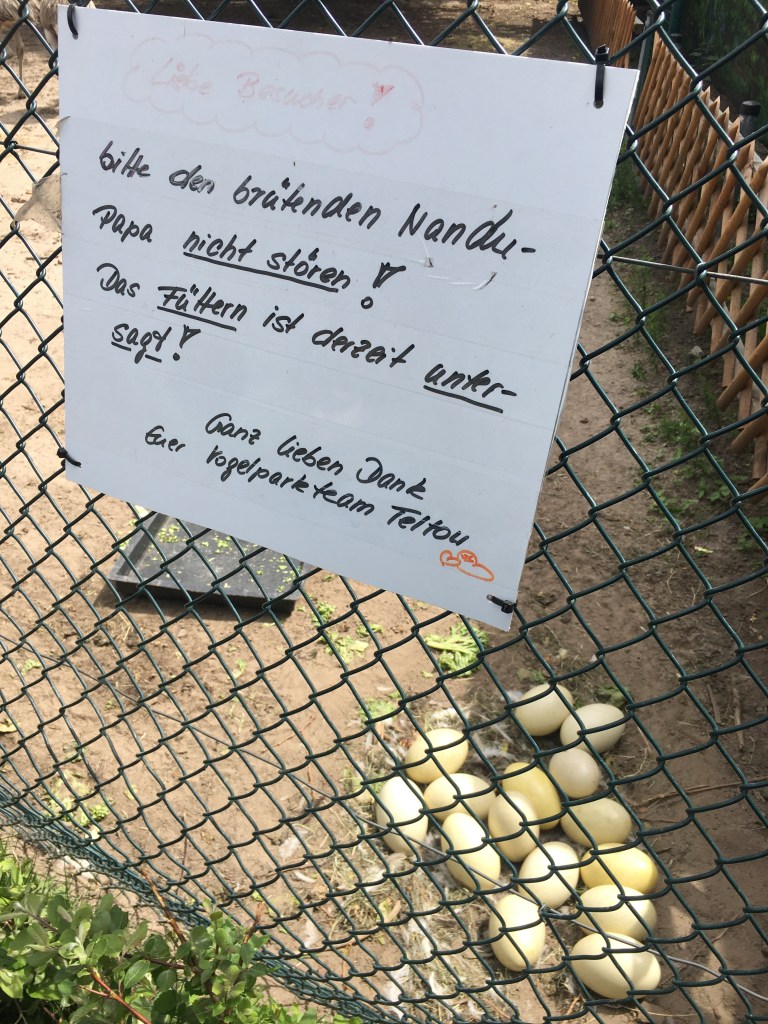 Liebe Besucher!
bitte den brütenden Nandu-
Papa nicht stören!
Das Füttern ist derzeit unter-
sagt!
Ganz lieben Dank
Euer Vogelparkteam Teltow